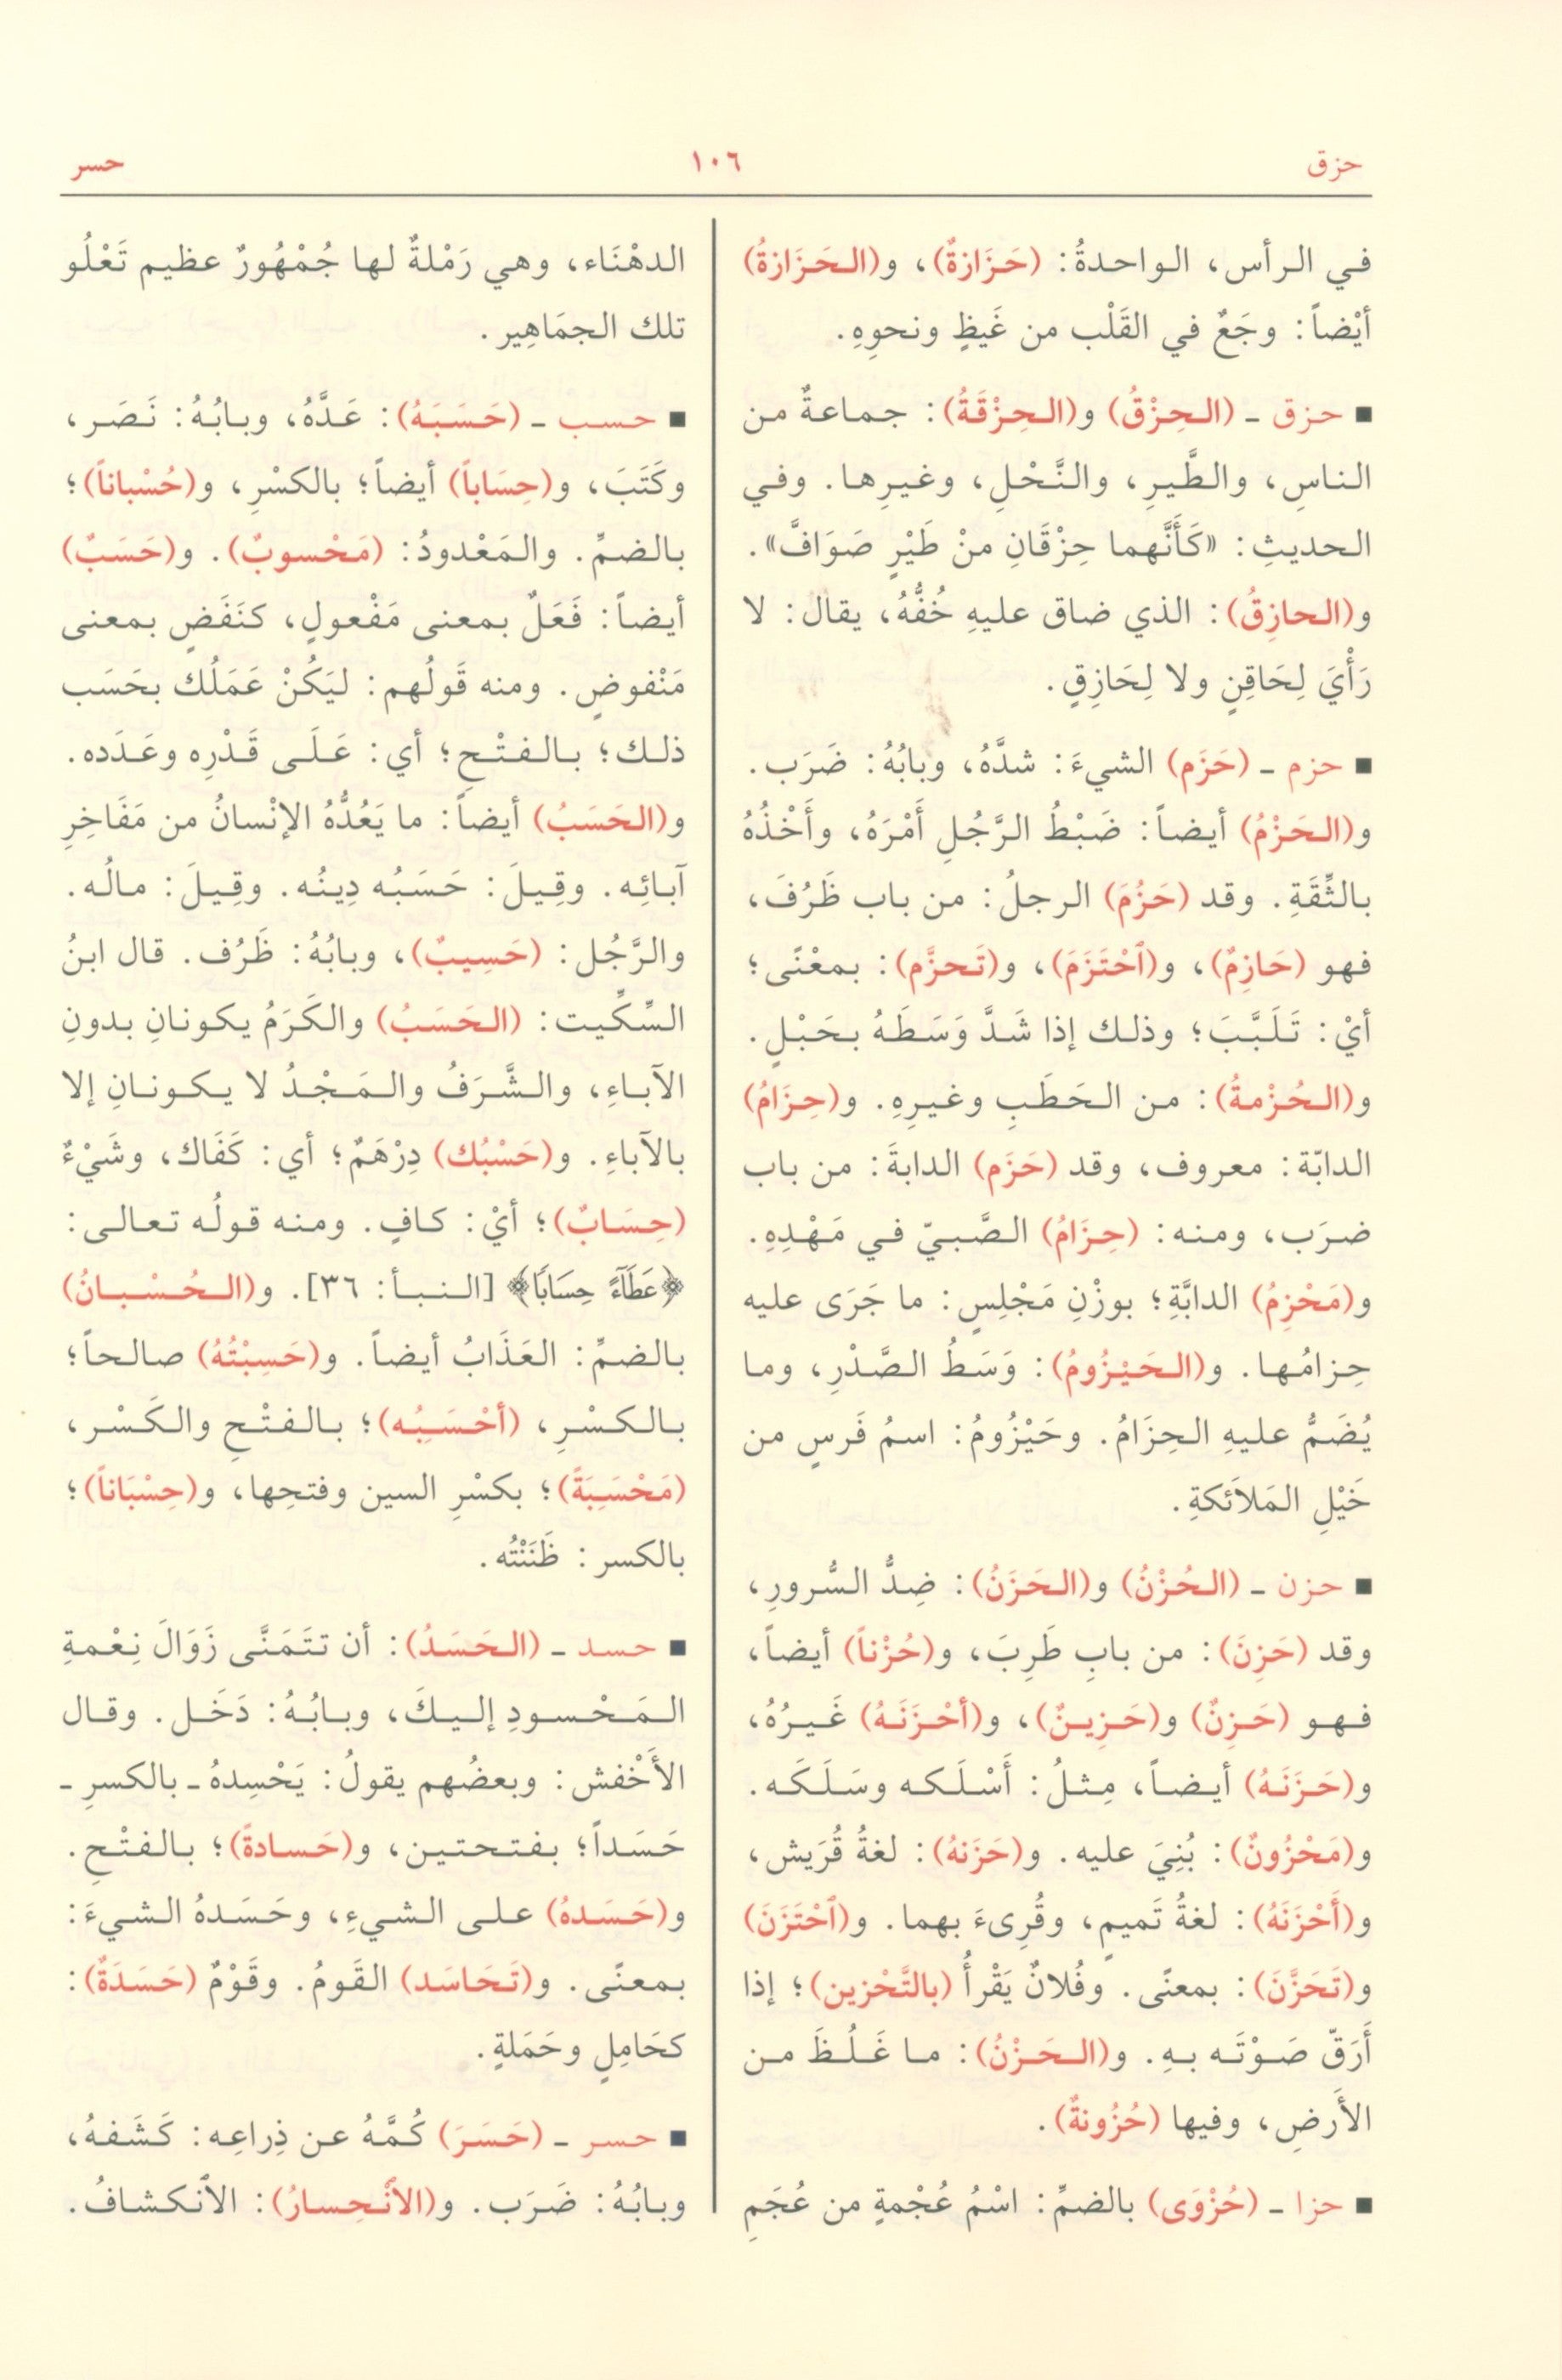 حزق ١٠٦ حسر
في الرأس، الواحدةُ: (حَزَازةٌ)، و(الحَزَازةُ)
أيْضاً: وجَعٌ في القَلْب من غَيظٍ ونحوِهِ.
■ حزق ـ (الحِزْقُ) و(الحِزْقَةُ): جماعةٌ من
الناسِ، والطَّيرِ، والنَّحْلِ، وغيرِها. وفي
الحديثِ: «كَأَنَّهما حِزْقَانِ منْ طَيْرٍ صَوَافَّ».
و(الحازِقُ): الذي ضاق عليهِ خُفُّهُ، يقال: لا
رَأْيَ لِحَاقِنٍ ولا لِحَازِقٍ.
■ حزم ـ (حَزَم) الشيءَ: شدَّهُ، وبابُهُ: ضَرَب.
و(الحَزْمُ) أيضاً: ضَبْطُ الرَّجُلِ أَمْرَهُ، وأَخْذُهُ
بالثِّقَةِ. وقد (حَزُمَ) الرجلُ: من باب ظَرُفَ،
فهو (حَازِمٌ)، و(ٱحْتَزَمَ)، و(تَحزَّم): بمعْنًى؛
أيْ: تَلَبَّبَ؛ وذلك إذا شَدَّ وَسَطَهُ بحَبْلٍ.
و(الحُزْمةُ): من الحَطَبِ وغيرِهِ. و(حِزَامُ)
الدابّة: معروف، وقد (حَزَم) الدابةَ: من باب
ضرَب، ومنه: (حِزَامُ) الصَّبيّ في مَهْدِهِ.
و(مَحْزِمُ) الدابَّةِ؛ بوزْنِ مَجْلِسٍ: ما جَرَى عليه
حِزامُها. و(الحَيْزُومُ): وَسَطُ الصَّدْرِ، وما
يُضَمُّ عليهِ الحِزَامُ. وحَيْزُومُ: اسمُ فَرسٍ من
خَيْلِ المَلاَئكةِ.
■ حزن ـ (الحُزْنُ) و(الحَزَنُ): ضِدُّ السُّرورِ،
وقد (حَزِنَ): من بابِ طَرِبَ، و(حُزْناً) أيضاً،
فهو (حَزِنٌ) و(حَزِينٌ)، و(أحْزَنَهُ) غَيرُهُ،
و(حَزَنَهُ) أيضاً، مِثلُ: أَسْلَكه وسَلَكَه.
و(مَحْزُونٌ): بُنِيَ عليه. و(حَزَنهُ): لغةُ قُرَيش،
و(أَحْزَنَهُ): لغةُ تَميمٍ، وقُرِىءَ بهما. و(ٱحْتَزَنَ)
و(تَحَزَّنَ): بمعنًى. وفُلانٌ يَقْرأُ (بالتَّحْزين)؛ إذا
أَرَقّ صَوْتَه بهِ. و(الحَزْنُ): ما غَلُظَ من
الأَرضِ، وفيها (حُزُونةٌ).
■ حزا ـ (حُزْوَى) بالضمِّ: اسْمُ عُجْمةٍ من عُجَمِ
الدهْنَاء، وهي رَمْلةٌ لها جُمْهُورٌ عظيم تَعْلُو
تلك الجمَاهِير.
■ حسب ـ (حَسَبَهُ): عَدَّهُ، وبابُهُ: نَصَر،
وكَتَبَ، و(حِسَاباً) أيضاً؛ بالكسْرِ، و(حُسْباناً)؛
بالضمِّ. والمَعْدودُ: (مَحْسوبٌ). و(حَسَبٌ)
أيضاً: فَعَلٌ بمعنى مَفْعولٍ، كنَفَضٍ بمعنى
مَنْفوضٍ. ومنه قَولُهم: ليَكُنْ عَمَلُك بحَسَب
ذلك؛ بالفتْحِ؛ أي: عَلَى قَدْرِه وعَدَده.
و(الحَسَبُ) أيضاً: ما يَعُدُّهُ الإنْسانُ من مَفَاخِرِ
آبائِه. وقِيلَ: حَسَبُه دِينُه. وقِيلَ: مالُه.
والرَّجُل: (حَسِيبٌ)، وبابُهُ: ظَرُف. قال ابنُ
السِّكِّيت: (الحَسَبُ) والكَرَمُ يكونانِ بدونِ
الآباءِ، والشَّرَفُ والمَجْدُ لا يكونانِ إلا
بالآباءِ. و(حَسْبُك) دِرْهَمٌ؛ أي: كَفَاك، وشَيْءٌ
(حِسَابٌ)؛ أيْ: كافٍ. ومنه قولُه تعالى:
﴿عَطَآءً حِسَابًا﴾ [النبأ: ٣٦]. و(الحُسْبانُ)
بالضمِّ: العَذَابُ أيضاً. و(حَسِبْتُهُ) صالحاً؛
بالكسْرِ، (أحْسَبُِه)؛ بالفتْحِ والكَسْر،
(مَحْسَِبَةً)؛ بكسْرِ السين وفتحِها، و(حِسْبَاناً)؛
بالكسر: ظَنَنْتُه.
■ حسد ـ (الحَسَدُ): أن تتَمَنَّى زَوَالَ نِعْمةِ
المَحْسودِ إليكَ، وبابُهُ: دَخَل. وقال
الأَخْفش: وبعضُهم يقولُ: يَحْسِدهُ ـ بالكسرِ ـ
حَسَداً؛ بفتحتين، و(حَسادةً)؛ بالفتْحِ.
و(حَسَدهُ) على الشيءِ، وحَسَدهُ الشيءَ:
بمعنًى. و(تَحَاسَد) القَومُ. وقَوْمٌ (حَسَدَةٌ):
كحَامِلٍ وحَمَلةٍ.
■ حسر ـ (حَسَرَ) كُمَّهُ عن ذِراعِه: كَشَفهُ،
وبابُهُ: ضَرَب. و(الاْنْحِسارُ): الاْنكشافُ.